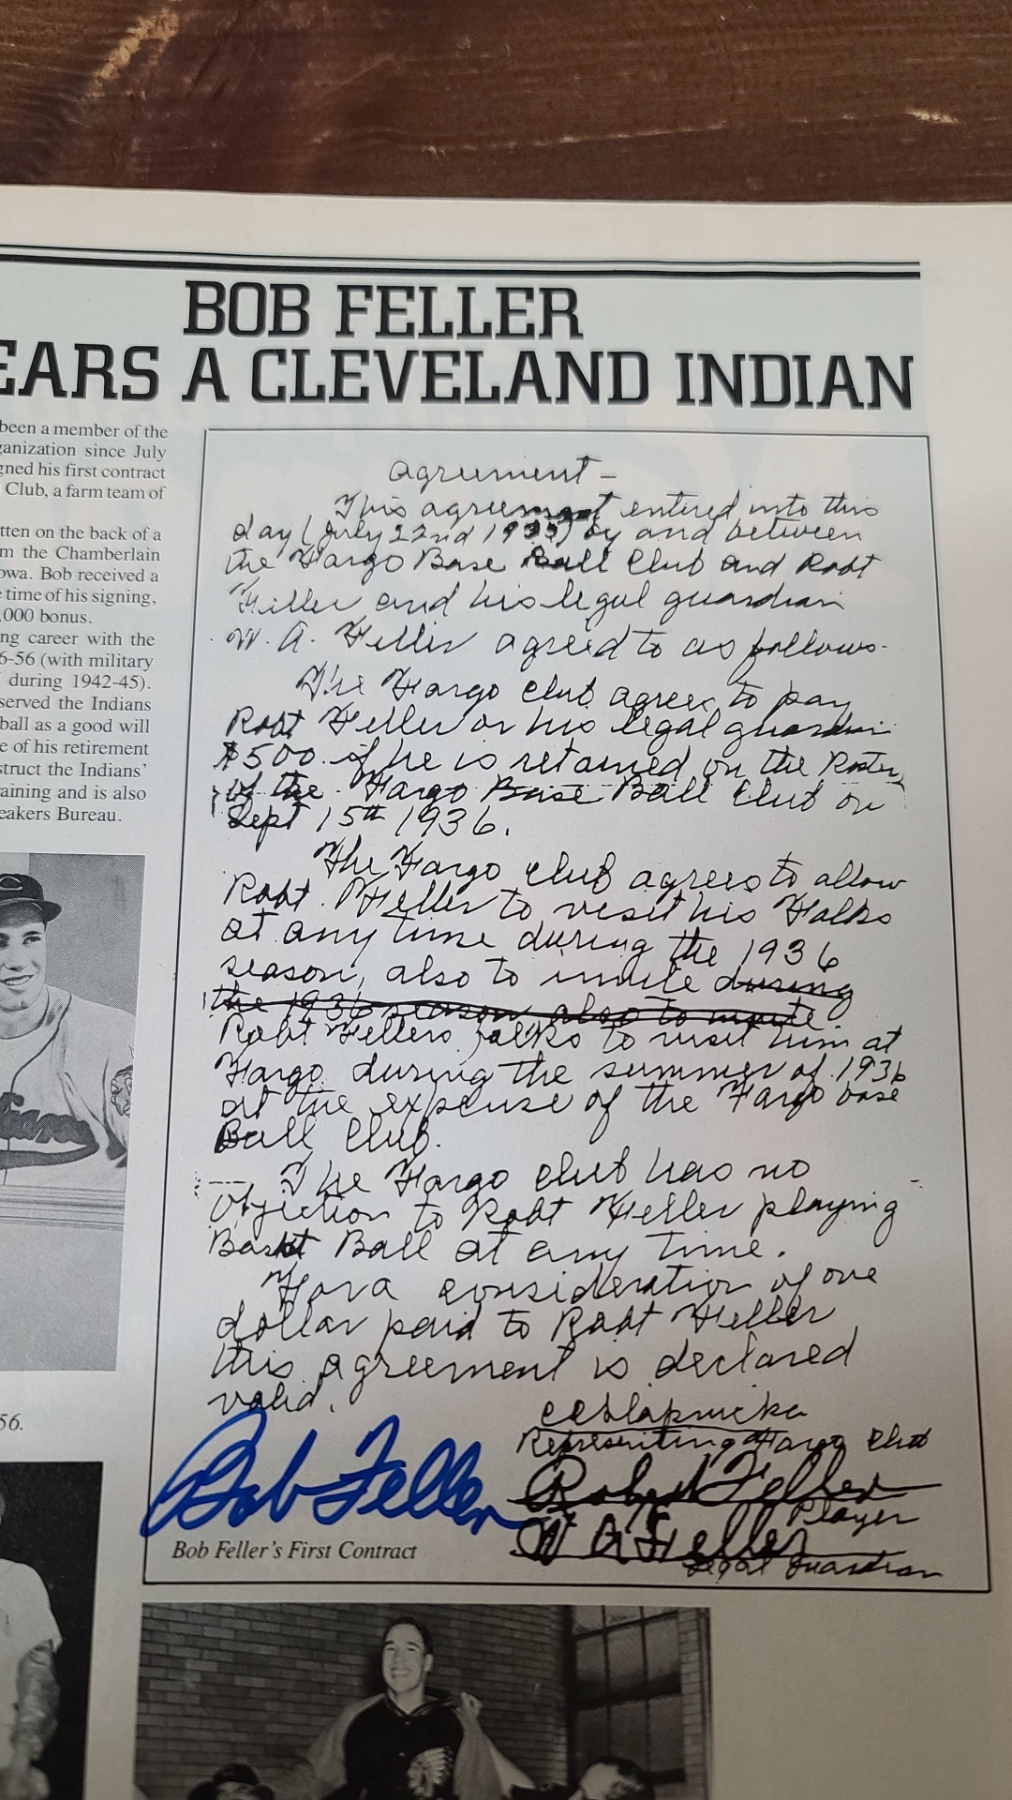 BOB FELLER
EARS A CLEVELAND INDIAN
been a member of the
ganization since July
gned his first contract
Club, a farm team of
tten on the back of a
m the Chamberlain
owa. Bob received a
time of his signing,
,000 bonus.
ng career with the
6-56 (with military
during 1942-45).
served the Indians
ball as a good will
e of his retirement
struct the Indians'
aining and is also
eakers Bureau.
56.
agreement -
This agreement entered into this
day (July 22nd 1935) by and between
the Fargo Base Ball Club and Robt
Feller and his legal guardian
W. A. Feller agreed to as follows.
The Fargo club agrees to pay
Robt Feller or his legal guardian
$500. if he is retained on the Roster
of the Fargo Base Ball Club on
Sept 15th 1936.
The Fargo club agrees to allow
Robt. Feller to visit his Folks
at any time during the 1936
season, also to invite during
the 1936 season also to invite
Robt Fellers folks to visit him at
Fargo during the summer of 1936
at the expense of the Fargo base
Ball Club.
The Fargo club has no
objection to Robt Feller playing
Baskt Ball at any time.
For a consideration of one
dollar paid to Robt Feller
this agreement is declared
valid.
CC Slapnicka
Representing Fargo Club
Robert Feller
Player
W A Feller
Legal Guardian
Bob Feller
Bob Feller's First Contract